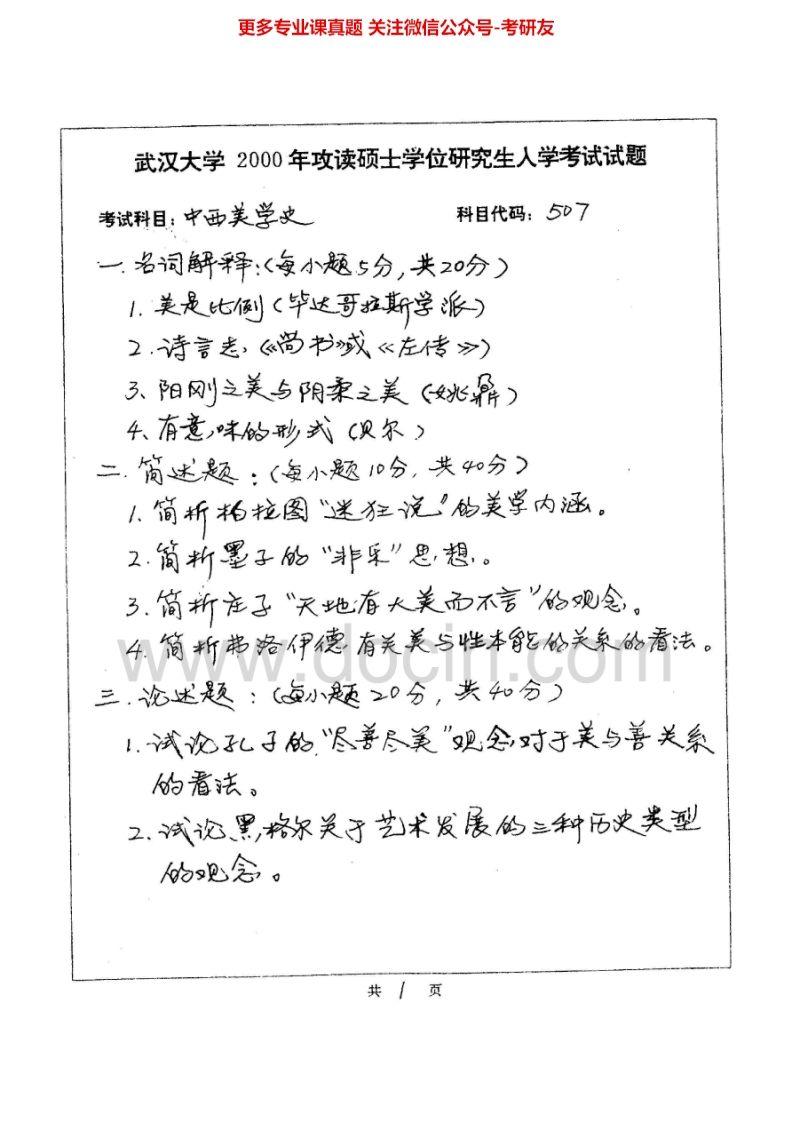 更多专业课真题 关注微信公众号-考研友
武汉大学 2000 年攻读硕士学位研究生入学考试试题
考试科目：中西美学史 科目代码：507
一. 名词解释：(每小题5分，共20分)
1. 美是比例(毕达哥拉斯学派)
2. 诗言志，(《尚书》或《左传》)
3、阳刚之美与阴柔之美 (姚鼐)
4、有意味的形式 (贝尔)
二. 简述题：(每小题10分，共40分)
1. 简析柏拉图“迷狂说”的美学内涵。
2. 简析墨子的“非乐”思想。
3. 简析庄子“天地有大美而不言”的观念。
4. 简析弗洛伊德有关美与性本能的关系的看法。
www.docin.com
三. 论述题：(每小题20分，共40分)
1. 试论孔子的“尽善尽美”观念对于美与善关系
的看法。
2. 试论黑格尔关于艺术发展的三种历史类型
的观念。
共 1 页